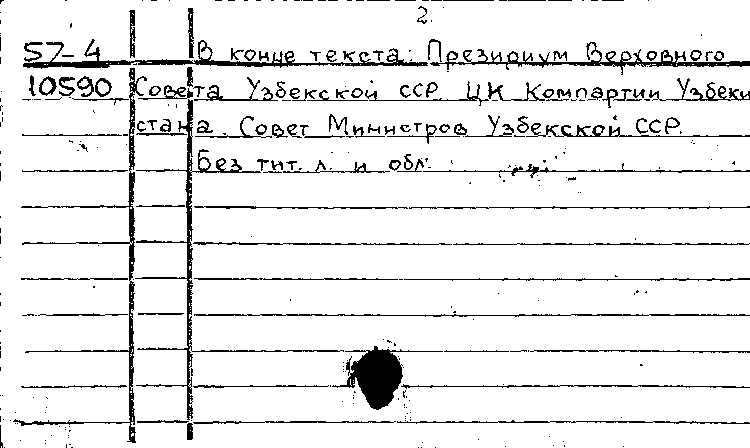 2.
57-4 В конце текста: Президиум Верховного
10590 Совета Узбекской ССР. ЦК Компартии Узбеки
стана. Совет Министров Узбекской ССР.
Без тит. л. и обл.